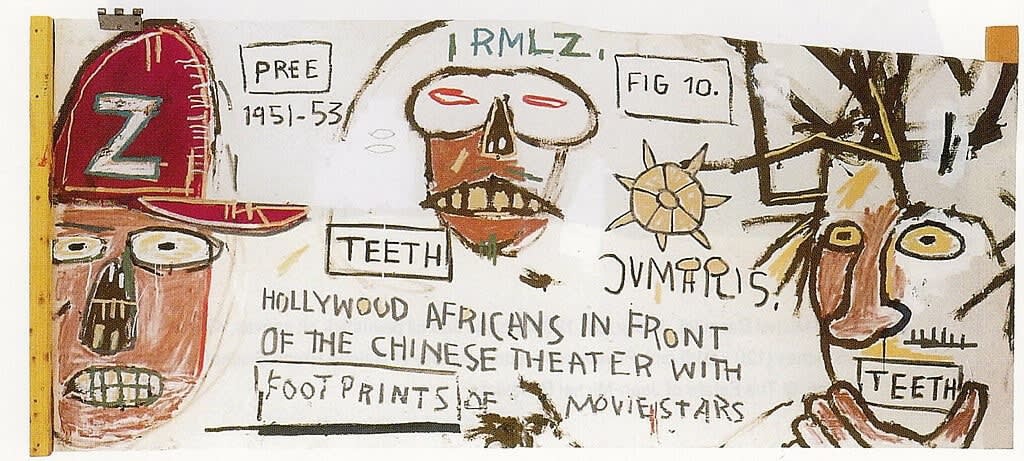 RMLZ.
PREE
FIG 10.
1951-53
Z
TEETH
JUMAPLIS.
HOLLYWOOD AFRICANS IN FRONT
OF THE CHINESE THEATER WITH
FOOTPRINTS OF MOVIE STARS
TEETH